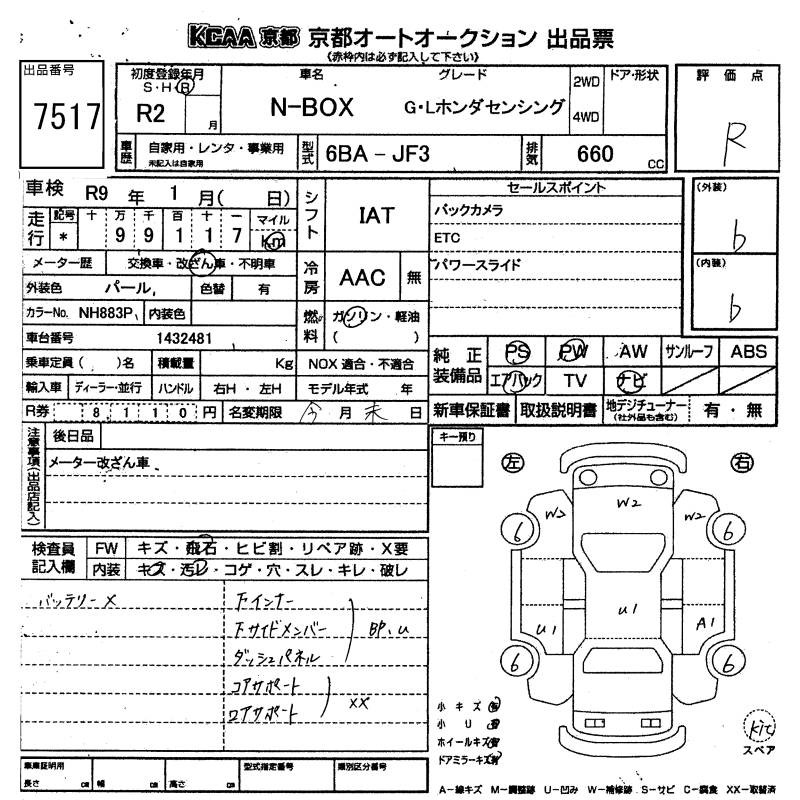 KCAA 京都 京都オートオークション 出品票
《赤枠内は必ず記入して下さい》
出品番号
7517
初度登録年月
S・H・R
R2
月
車名
N-BOX
グレード
G・Lホンダセンシング
2WD
4WD
ドア・形状
評価点
R
車歴
自家用・レンタ・事業用
未記入は自家用
型式
6BA-JF3
排気
660
CC
車検 R9 年 1 月( 日)
走行
記号 十 万 千 百 十 一 マイル
* 9 9 1 1 7 Km
メーター歴 交換車・改ざん車・不明車
外装色 パール, 色替 有
カラーNo. NH883P, 内装色
車台番号 1432481
乗車定員( )名 積載量 Kg
輸入車 ディーラー・並行 ハンドル 右H・左H
R券 8 1 1 0 円 名変期限 今 月 末 日
シフト IAT
冷房 AAC 無
燃料 ガソリン・軽油
( )
NOX 適合・不適合
モデル年式 年
セールスポイント
バックカメラ
ETC
パワースライド
(外装)
b
(内装)
b
純正装備品
PS PW AW サンルーフ ABS
エアバック TV ナビ
新車保証書 取扱説明書 地デジチューナー(社外品も含む) 有・無
注意事項(出品店記入)
後日品
メーター改ざん車
キー預り
左
右
検査員記入欄
FW キズ・飛石・ヒビ割・リペア跡・X要
内装 キズ・汚レ・コゲ・穴・スレ・キレ・破レ
バッテリーX
下インナー
下サイドメンバー
ダッシュパネル
BP、u
コアサポート
ロアサポート
XX
W2
W2
W2
6
6
U1
U1
A1
6
6
小キズ 有
小 U 有
ホイールキズ 有
ドアミラーキズ 有
kit
スペア
車庫証明用
長さ cm 幅 cm 高さ cm
型式指定番号
類別区分番号
A-線キズ M-調整跡 U-凹み W-補修跡 S-サビ C-腐食 XX-取替済